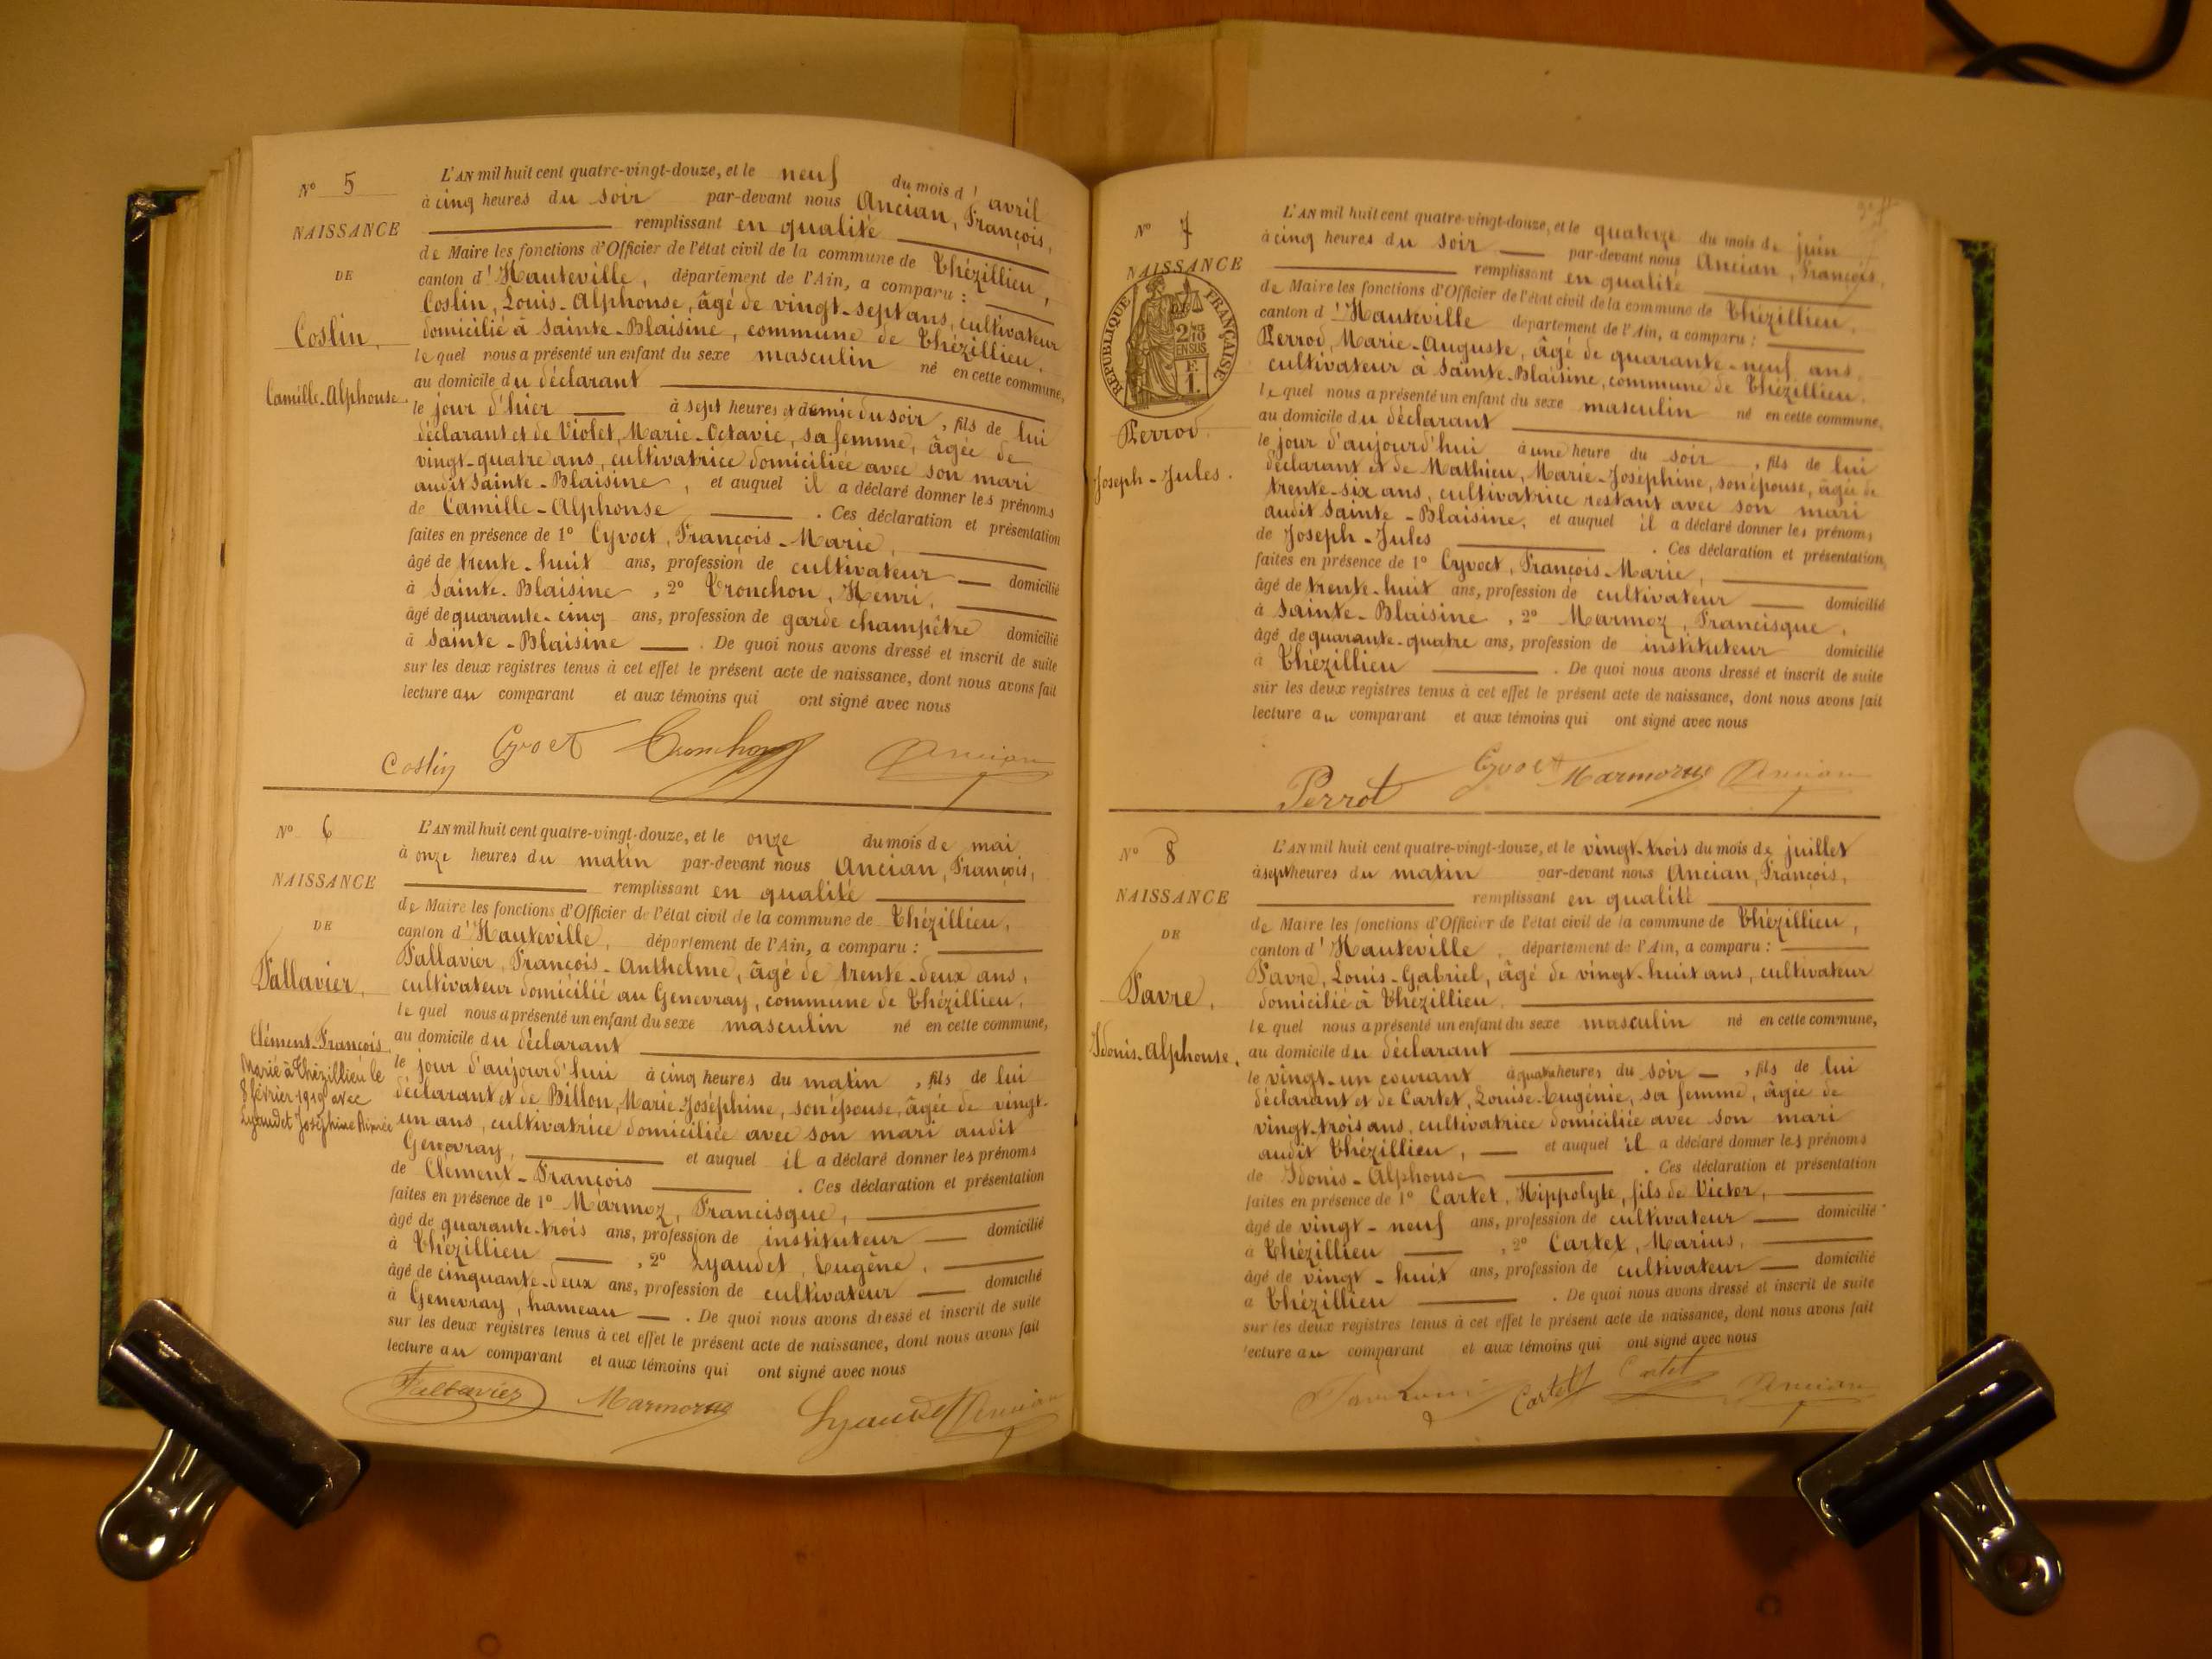 Nº 5
NAISSANCE
DE
Coslin,
Camille-Alphonse.
L'AN mil huit cent quatre-vingt-douze, et le neuf du mois d'avril
à cinq heures du soir par-devant nous Ancian, François,
remplissant en qualité
de Maire les fonctions d'Officier de l'état civil de la commune de Thézillieu,
canton d'Hauteville, département de l'Ain, a comparu :
Coslin, Louis-Alphonse, âgé de vingt-sept ans, cultivateur
domicilié à Sainte-Blaisine, commune de Thézillieu,
lequel nous a présenté un enfant du sexe masculin né en cette commune,
au domicile du déclarant
le jour d'hier à sept heures et demie du soir, fils de lui
déclarant et de Violet, Marie-Octavie, sa femme, âgée de
vingt-quatre ans, cultivatrice domiciliée avec son mari
audit Sainte-Blaisine, et auquel il a déclaré donner les prénoms
de Camille-Alphonse . Ces déclaration et présentation
faites en présence de 1º Cyvoct, François-Marie,
âgé de trente-huit ans, profession de cultivateur domicilié
à Sainte-Blaisine, 2º Tronchon, Henri,
âgé de quarante-cinq ans, profession de garde champêtre domicilié
à Sainte-Blaisine . De quoi nous avons dressé et inscrit de suite
sur les deux registres tenus à cet effet le présent acte de naissance, dont nous avons fait
lecture au comparant et aux témoins qui ont signé avec nous
Coslin Cyvoct Tronchon Ancian
Nº 6
NAISSANCE
DE
Fallavier,
Clément-François
Marié à Thézillieu le
8 février 1919 avec
Lyaudet Joséphine Aimée
L'AN mil huit cent quatre-vingt-douze, et le onze du mois de mai
à onze heures du matin par-devant nous Ancian, François,
remplissant en qualité
de Maire les fonctions d'Officier de l'état civil de la commune de Thézillieu,
canton d'Hauteville, département de l'Ain, a comparu :
Fallavier, François-Anthelme, âgé de trente-deux ans,
cultivateur domicilié au Genevray, commune de Thézillieu,
lequel nous a présenté un enfant du sexe masculin né en cette commune,
au domicile du déclarant
le jour d'aujourd'hui à cinq heures du matin, fils de lui
déclarant et de Billon, Marie-Joséphine, son épouse, âgée de vingt-
un ans, cultivatrice domiciliée avec son mari audit
Genevray, et auquel il a déclaré donner les prénoms
de Clément-François . Ces déclaration et présentation
faites en présence de 1º Marmoz, Francisque,
âgé de quarante-trois ans, profession de instituteur domicilié
à Thézillieu , 2º Lyaudet, Eugène,
âgé de cinquante-deux ans, profession de cultivateur domicilié
à Genevray, hameau . De quoi nous avons dressé et inscrit de suite
sur les deux registres tenus à cet effet le présent acte de naissance, dont nous avons fait
lecture au comparant et aux témoins qui ont signé avec nous
Fallavier Marmoz Lyaudet Ancian
Nº 7
NAISSANCE
DE
RÉPUBLIQUE FRANÇAISE
2/10 EN SUS
F.
1.
Perrod.
Joseph-Jules.
L'AN mil huit cent quatre-vingt-douze, et le quatorze du mois de juin
à cinq heures du soir par-devant nous Ancian, François,
remplissant en qualité
de Maire les fonctions d'Officier de l'état civil de la commune de Thézillieu,
canton d'Hauteville département de l'Ain, a comparu :
Perrod, Marie-Auguste, âgé de quarante-neuf ans,
cultivateur à Sainte-Blaisine, commune de Thézillieu,
lequel nous a présenté un enfant du sexe masculin né en cette commune,
au domicile du déclarant
le jour d'aujourd'hui à une heure du soir, fils de lui
déclarant et de Mathieu, Marie-Joséphine, son épouse, âgée de
trente-six ans, cultivatrice restant avec son mari
audit Sainte-Blaisine, et auquel il a déclaré donner les prénoms
de Joseph-Jules . Ces déclaration et présentation
faites en présence de 1º Cyvoct, François-Marie,
âgé de trente-huit ans, profession de cultivateur domicilié
à Sainte-Blaisine, 2º Marmoz, Francisque,
âgé de quarante-quatre ans, profession de instituteur domicilié
à Thézillieu . De quoi nous avons dressé et inscrit de suite
sur les deux registres tenus à cet effet le présent acte de naissance, dont nous avons fait
lecture au comparant et aux témoins qui ont signé avec nous
Perrot Cyvoct Marmoz Ancian
Nº 8
NAISSANCE
DE
Favre,
Idonis-Alphonse.
L'AN mil huit cent quatre-vingt-douze, et le vingt-trois du mois de juillet
à sept heures du matin par-devant nous Ancian, François,
remplissant en qualité
de Maire les fonctions d'Officier de l'état civil de la commune de Thézillieu,
canton d'Hauteville, département de l'Ain, a comparu :
Favre, Louis-Gabriel, âgé de vingt-huit ans, cultivateur
domicilié à Thézillieu,
lequel nous a présenté un enfant du sexe masculin né en cette commune,
au domicile du déclarant
le vingt-un courant à quatre heures du soir, fils de lui
déclarant et de Cartet, Louise-Eugénie, sa femme, âgée de
vingt-trois ans, cultivatrice domiciliée avec son mari
audit Thézillieu, et auquel il a déclaré donner les prénoms
de Idonis-Alphonse . Ces déclaration et présentation
faites en présence de 1º Cartet, Hippolyte, fils de Victor,
âgé de vingt-neuf ans, profession de cultivateur domicilié
à Thézillieu , 2º Cartet, Marius,
âgé de vingt-huit ans, profession de cultivateur domicilié
à Thézillieu . De quoi nous avons dressé et inscrit de suite
sur les deux registres tenus à cet effet le présent acte de naissance, dont nous avons fait
lecture au comparant et aux témoins qui ont signé avec nous
Cartet Cartet Ancian